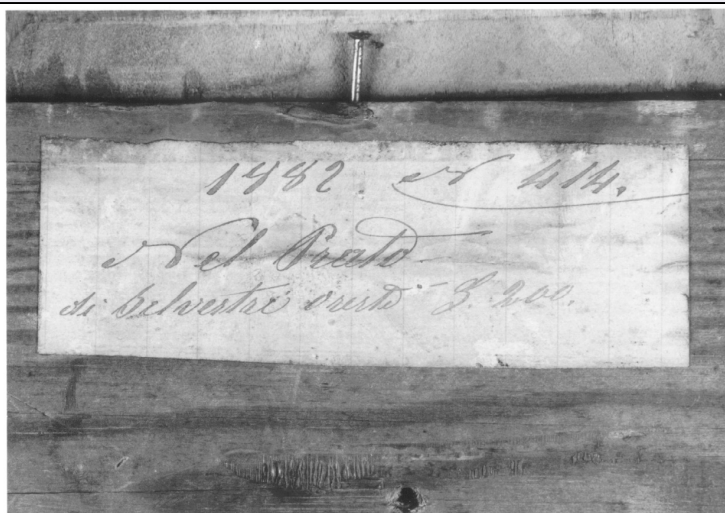 1882. N 414.
Nel Prato
di Selvestri Oreste L. 200.